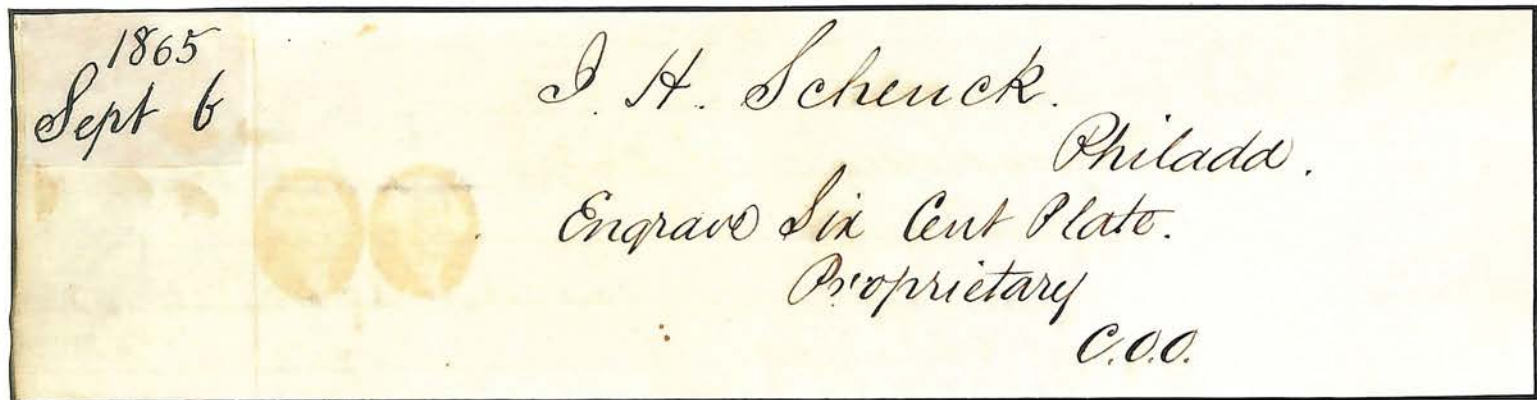 1865
Sept 6
J. H. Schenck.
Philadd.
Engrave Six Cent Plate.
Proprietary
C.O.O.